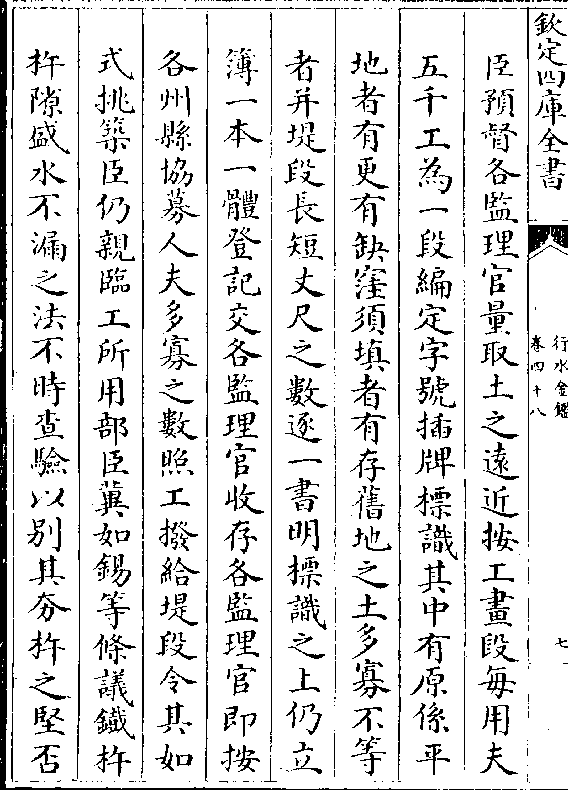 欽定四庫全書
行水金鑑
卷四十八
七
臣預督各監理官量取土之遠近按工畫段每用夫
五千工為一段編定字號插牌標識其中有原係平
地者有更有缺窪須填者有存舊地之土多寡不等
者并堤段長短丈尺之數逐一書明標識之上仍立
簿一本一體登記交各監理官收存各監理官即按
各州縣協募人夫多寡之數照工撥給堤段令其如
式挑築臣仍親臨工所用部臣龔如錫等條議鐵杵
杵隙盛水不漏之法不時查驗以別其夯杵之堅否